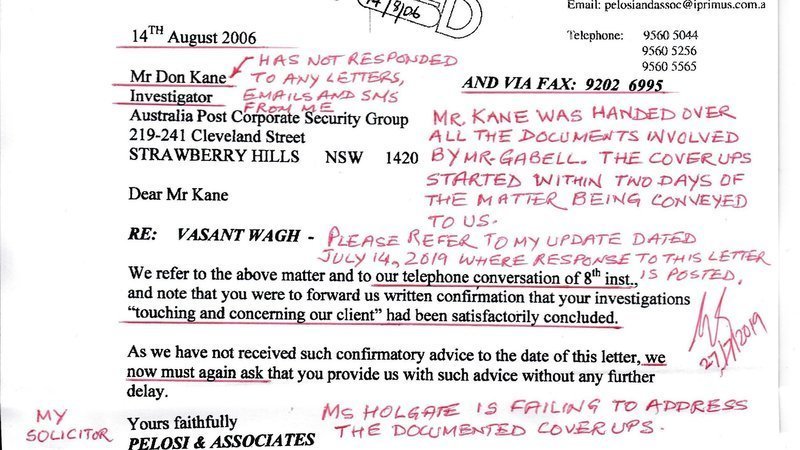 14/8/06
D
Email: pelosiandassoc@iprimus.com.a
14TH August 2006
Telephone: 9560 5044
9560 5256
9560 5565
HAS NOT RESPONDED
TO ANY LETTERS,
EMAILS AND SMS
FROM ME
Mr Don Kane
Investigator
AND VIA FAX: 9202 6995
Australia Post Corporate Security Group
219-241 Cleveland Street
STRAWBERRY HILLS NSW 1420
MR. KANE WAS HANDED OVER
ALL THE DOCUMENTS INVOLVED
BY MR. GABELL. THE COVER UPS
STARTED WITHIN TWO DAYS OF
THE MATTER BEING CONVEYED
TO US.
Dear Mr Kane
RE: VASANT WAGH -
PLEASE REFER TO MY UPDATE DATED
JULY 14, 2019 WHERE RESPONSE TO THIS LETTER
IS POSTED.
We refer to the above matter and to our telephone conversation of 8th inst.,
and note that you were to forward us written confirmation that your investigations
“touching and concerning our client” had been satisfactorily concluded.
27/7/2019
As we have not received such confirmatory advice to the date of this letter, we
now must again ask that you provide us with such advice without any further
delay.
MY
SOLICITOR
Yours faithfully
PELOSI & ASSOCIATES
MS HOLGATE IS FAILING TO ADDRESS
THE DOCUMENTED COVER UPS.